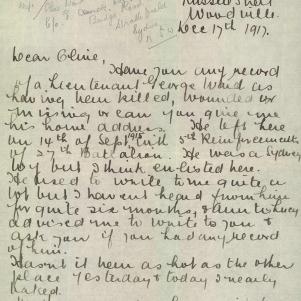 Russell Street
Woodville.
Dec 17th 1917.
Dear Clive,
Have you any record
of a Lieutenant George Ward as
having been killed, wounded or
missing or can you give me
his home address. He left here
on 14th of Sept 1915 with 5th Reinforcements
of 27th Battalion. He was a Sydney
boy but I think enlisted here.
He used to write to me quite a
lot but I haven't heard from him
for quite six months, & Aunt
advised me to write to you &
ask you if you had any record
of him.
Hasn't it been as hot as the other
place yesterday & today I nearly
baked.